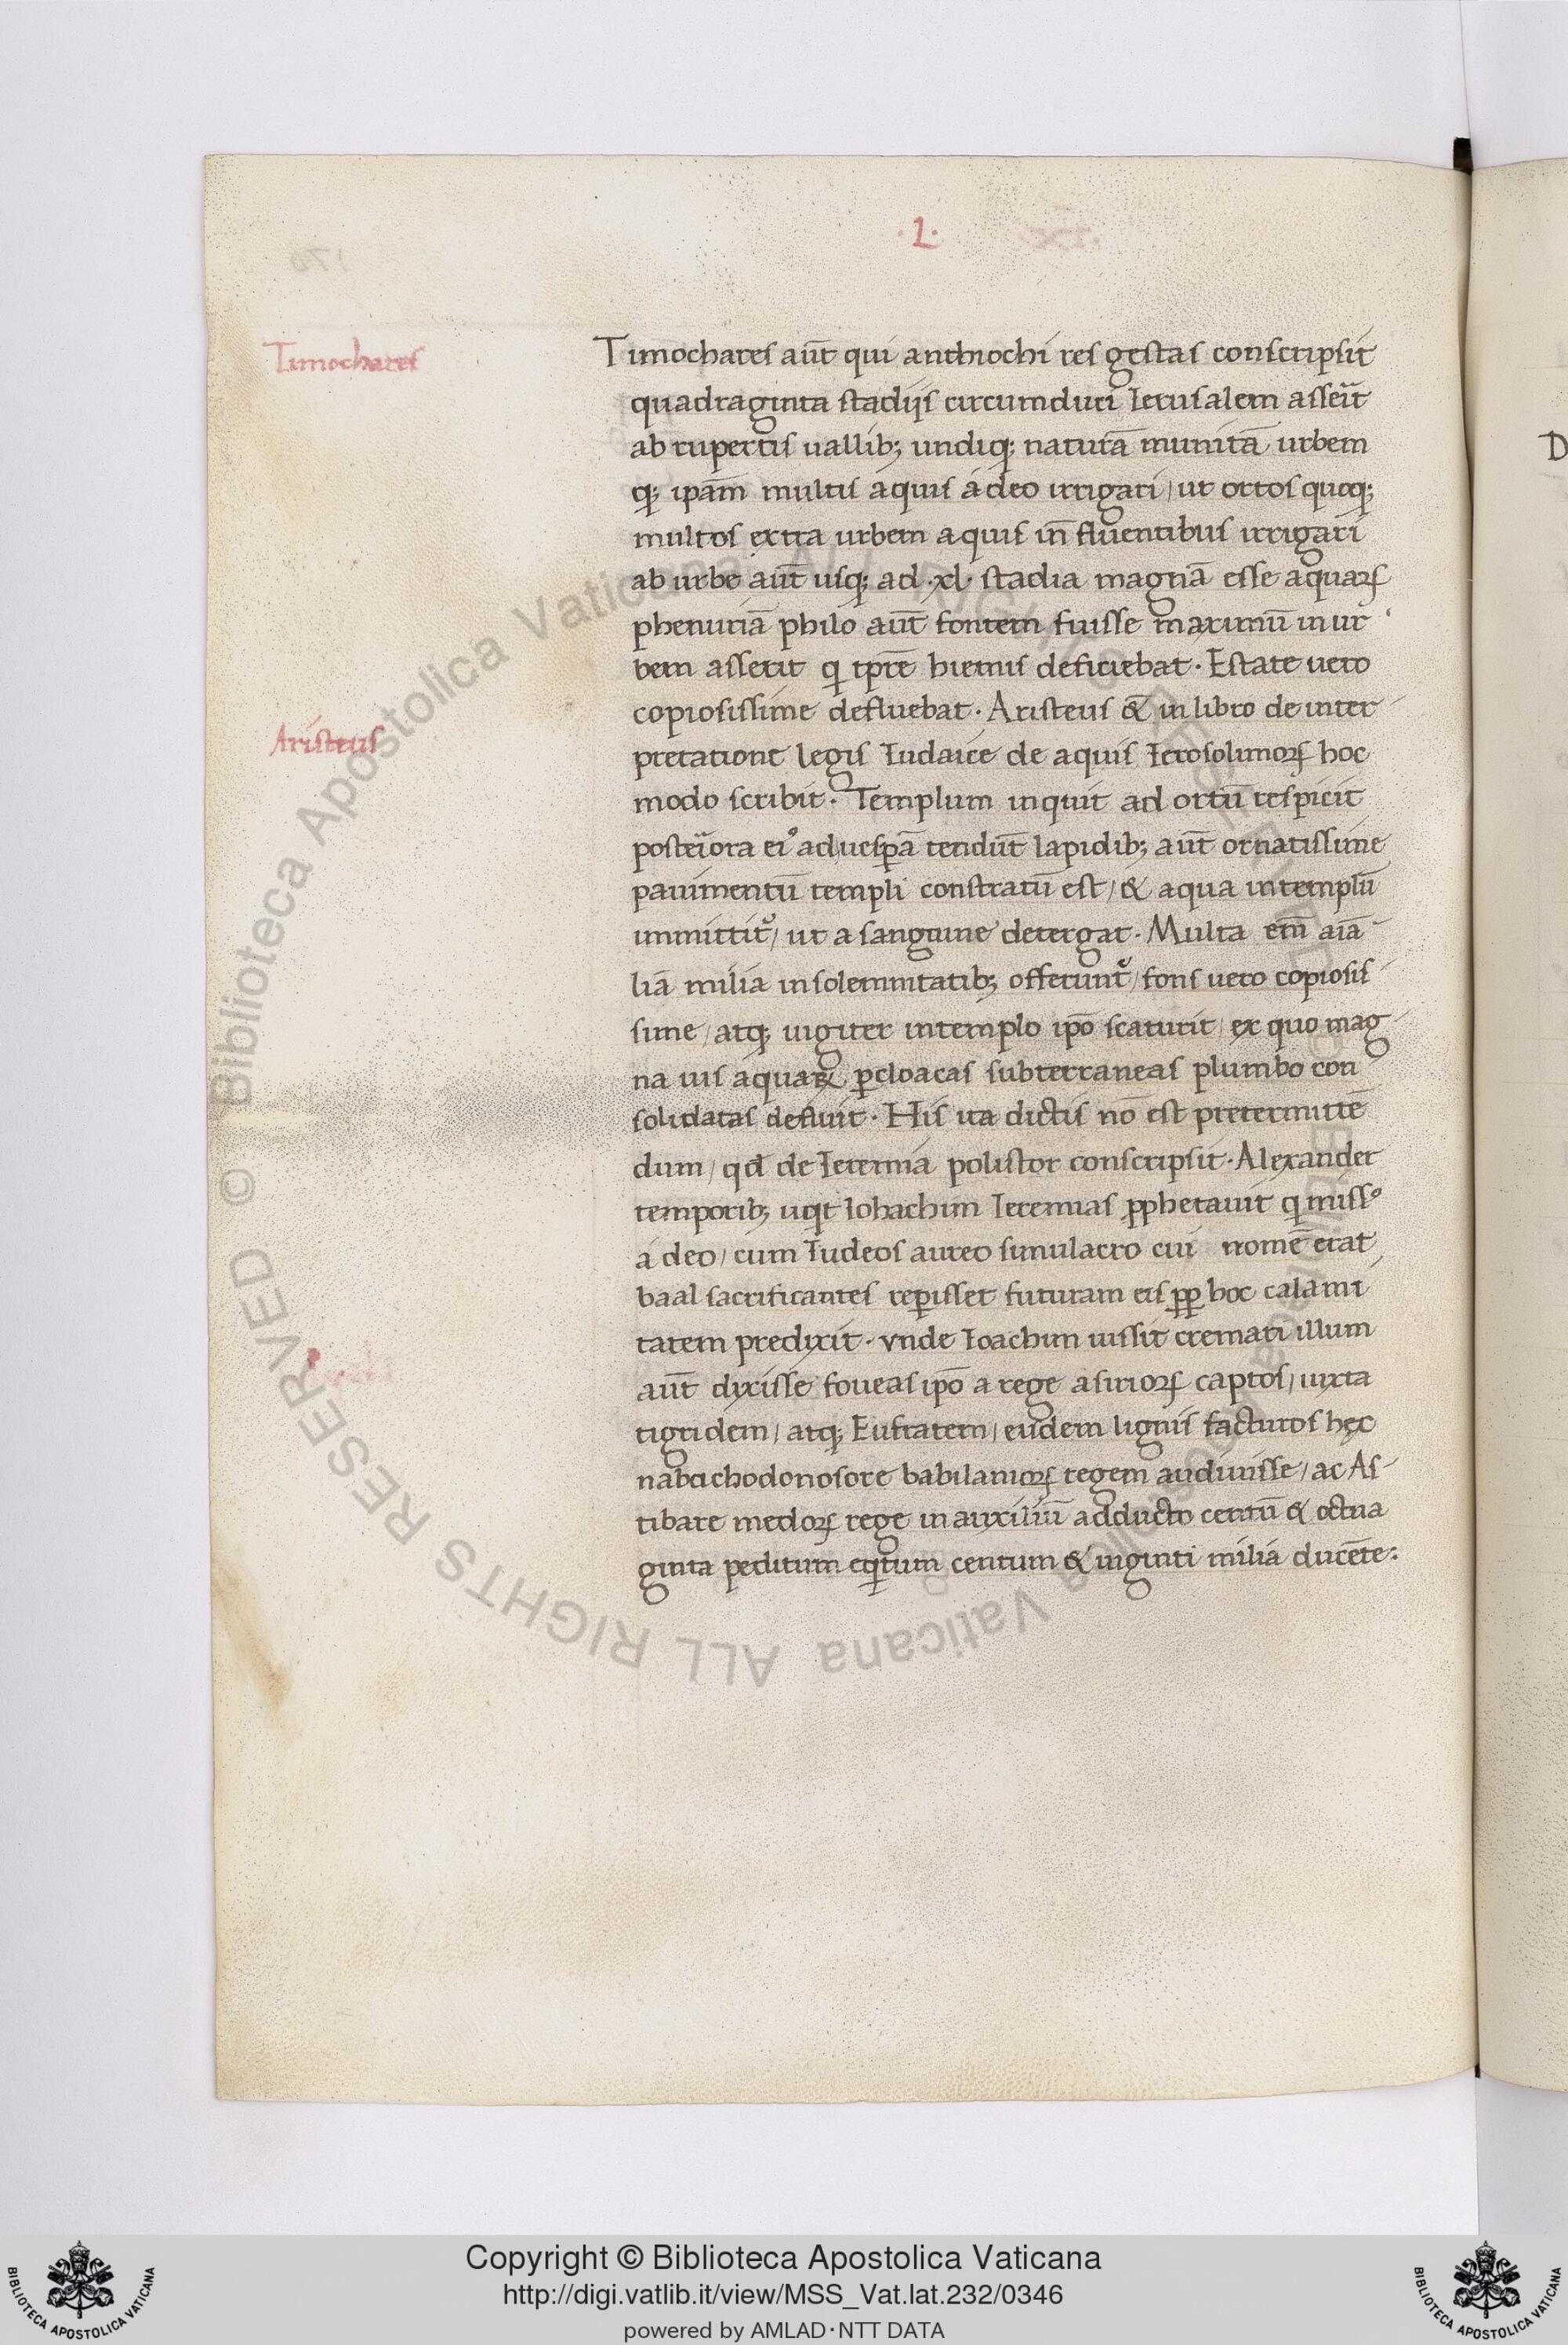 ·L·
Timochares
Timochares aut̄ qui anthiochi res gestas conscripsit
quadraginta stadijs circumduci Ierusalem asseīt
ab rupertis uallib; undiq; naturā munitā urbem
q; ipām multis aquis adeo irrigari / ut ortos quoq;
multos extra urbem aquis in̄ fluentibus irrigari
ab urbe aut̄ usq; ad ·xl· stadia magnā esse aquaꝝ
phenuriā philo aut̄ fontem fuisse maximū in ur
bem asserit q tp̄re hiemis deficiebat · Estate uero
copiosissime defluebat · Aristeus & in libro de inter
Aristeus
pretatione legis Iudaice de aquis Ierosolimoꝝ hoc
modo scribit · Templum inquit ad ortū respicit
posteīora eiꝰ ad uesꝑā tendūt lapidib; aut̄ ornatissime
pauimentū templi constratū est / & aqua in templū
immittit᷑ / ut a sanguine detergat · Multa em̄ aīa
liā milia in solemnitatib; offerunt᷑ / fons uero copiosis
sime / atq; iugiter in templo ipō scaturit / ex quo mag
na uis aquaꝝ ꝑ cloacas subterraneas plumbo con
solidatas defluit · His ita dictis nō est pretermittē
dum / qd̄ de Ieremia polistor conscripsit · Alexander
temporib; iohachim Ieremias ꝓphetauit q missꝰ
a deo / cum Iudeos aureo simulacro cui nomē erat
baal sacrificantes reperisset futuram eis ꝓp hoc calami
tatem predixit · vnde Ioachim iussit cremari illum
aut̄ dixisse foueas ipō a rege asirioꝝ captos / iuxta
tigridem / atq; Eufratem / eisdem lignis facturos hęc
nabuchodonosore babilanioꝝ regem audiuisse / ac As
tibare medoꝝ rege in auxiliū adducto centū & octua
ginta peditum eqtum centum & uiginti milia ducēte:
D
Copyright © Biblioteca Apostolica Vaticana
http://digi.vatlib.it/view/MSS_Vat.lat.232/0346
powered by AMLAD·NTT DATA
BIBLIOTECA APOSTOLICA VATICANA
BIBLIOTECA APOSTOLICA VATICANA